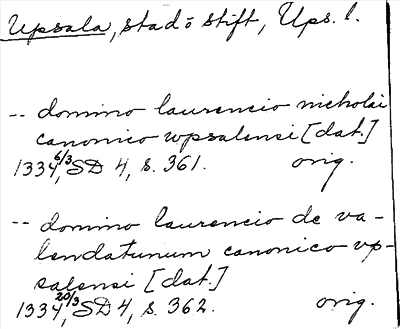 Upsala, stad o stift, Ups. l.
-- domino laurencio nicholai
canonico vpsalensi [dat.]
1334 6/3, SD 4, s. 361. orig.
-- domino laurencio de va-
lendatunum canonico vp-
salensi [dat.]
1334 20/3, SD 4, s. 362. orig.